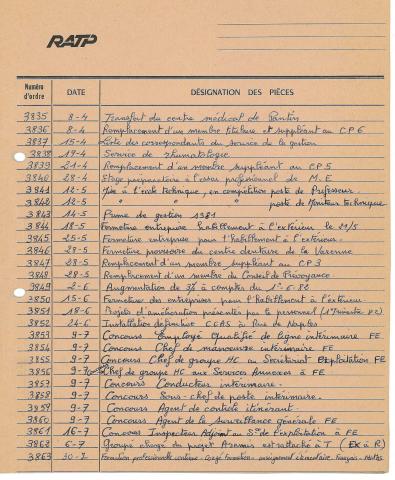 RATP
Numéro d'ordre DATE DÉSIGNATION DES PIÈCES
3835 8-4 Transfert du centre médical de Pantin
3836 8-4 Remplacement d'un membre titulaire et suppléant au CP6
3837 15-4 Liste des correspondants du service de la gestion
3838 19-4 Service de rhumatologie
3839 21-4 Remplacement d'un membre suppléant au CP5
3840 28-4 Stage préparatoire à l'essai professionnel de M.E
3841 12-5 Mise à l'école technique, en compétition poste de Professeur.
3842 12-5 " " " poste de Moniteur technique
3843 14-5 Prime de gestion 1981
3844 18-5 Fermeture entreprise habillement à l'extérieur le 21/5
3845 25-5 Fermeture entreprise pour l'habillement à l'extérieur.
3846 28-5 Fermeture provisoire du centre dentaire de la Varenne
3847 28-5 Remplacement d'un membre suppléant au CP3
3848 28-5 Remplacement d'un membre du Conseil de Prévoyance
3849 2-6 Augmentation de 3% à compter du 1-6-82
3850 15-6 Fermeture des entreprises pour l'habillement à l'extérieur.
3851 18-6 Projets d'amélioration présentés par le personnel (1er trimestre 82)
3852 24-6 Installation CCAS à Rue de Naples
3853 9-7 Concours Employé Qualifié de ligne intérimaire FE
3854 9-7 Concours Chef de manoeuvre intérimaire FE
3855 9-7 Concours Chef de groupe HC au Secrétariat Exploitation FE
3856 9-7 Chef de groupe HC aux Services Annexes à FE
3857 9-7 Concours Conducteur intérimaire.
3858 9-7 Concours Sous-chef de poste intérimaire.
3859 9-7 Concours Agent de contrôle itinérant.
3860 9-7 Concours Agent de la surveillance générale FE
3861 16-7 Concours Inspecteur Adjoint au Sce de l'exploitation à FE
3862 6-7 Groupe chargé du projet Aramis est rattaché à T (EX à R)
3863 30-7 Formation professionnelle continue - Congé formation - enseignement élémentaire. Français - Maths